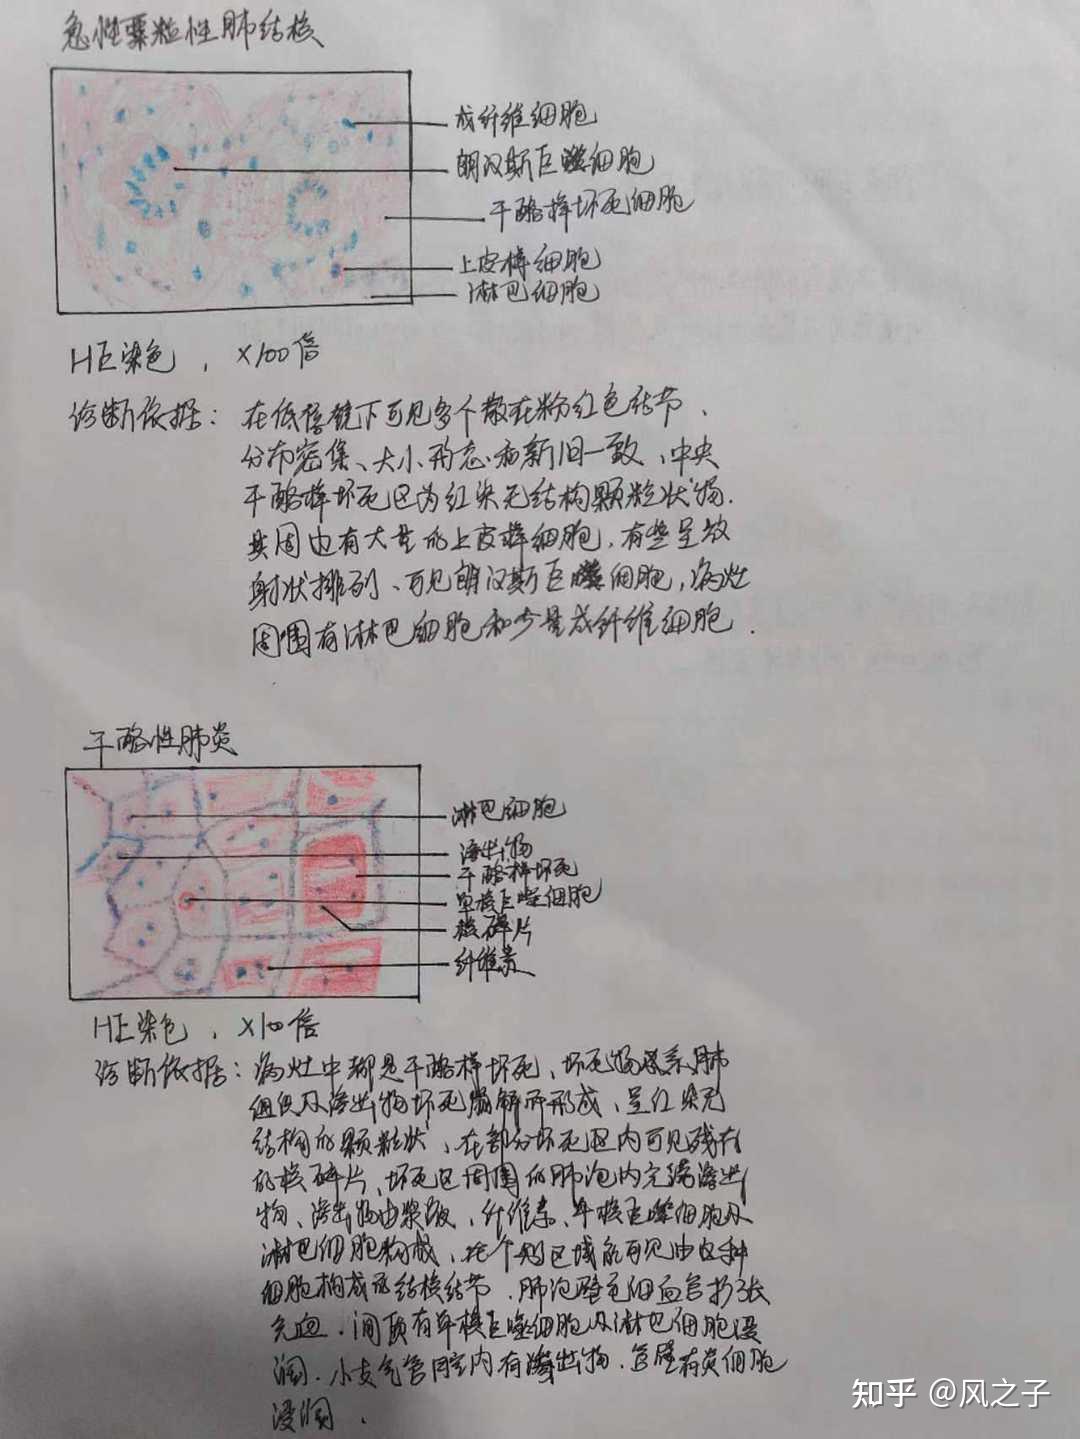 急性粟粒性肺结核
成纤维细胞
朗汉斯巨噬细胞
干酪样坏死细胞
上皮样细胞
淋巴细胞
HE染色，×100倍
诊断依据：在低倍镜下可见多个散在粉红色结节、
分布密集、大小、形态和新旧一致、中央
干酪样坏死区为红染无结构颗粒状物.
其周也有大量的上皮样细胞，有些呈放
射状排列、可见朗汉斯巨噬细胞，病灶
周围有淋巴细胞和少量成纤维细胞.
干酪性肺炎
淋巴细胞
渗出物
干酪样坏死
单核巨噬细胞
核碎片
纤维素
HE染色，×100倍
诊断依据：病灶中都是干酪样坏死、坏死物系肺
组织及渗出物坏死崩解而形成、呈红染无
结构的颗粒状、在部分坏死区内可见残存
的核碎片、坏死区周围的肺泡内充满渗出
物、渗出物由浆液、纤维素、单核巨噬细胞及
淋巴细胞构成、在个别区域能可见由这种
细胞构成的结核结节．肺泡壁毛细血管扩张
充血．间质有单核巨噬细胞及淋巴细胞浸
润．小支气管腔内有渗出物．管壁有炎细胞
浸润．
知乎 @风之子